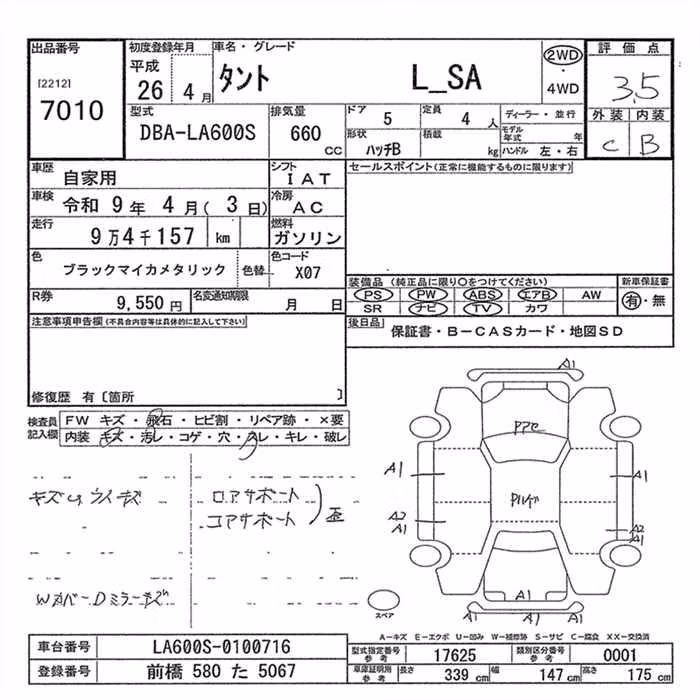 出品番号
[2212]
7010
初度登録年月
平成
26 4 月
車名・グレード
タント L_SA
2WD
・
4WD
評価点
3.5
外装 内装
C B
型式
DBA-LA600S
排気量
660 CC
ドア 5
定員 4 人
ディーラー・並行
形状 ハッチB
積載 kg
モデル年式 年
ハンドル 左・右
車歴
自家用
シフト
IAT
車検
令和 9 年 4 月( 3 日)
冷房
AC
走行
9 万 4 千 157 km
燃料
ガソリン
色
ブラックマイカメタリック
色替
色コード
X07
R券
9,550 円
名変通知期限 月 日
セールスポイント(正常に機能するものに限ります)
装備品 (純正品に限り○をつけてください)
新車保証書
PS PW ABS エアB AW
有・無
SR ナビ TV カワ
後日品
保証書・B-CASカード・地図SD
注意事項申告欄(不具合内容等は具体的に記入して下さい)
修復歴 有〔箇所 〕
検査員記入欄
FW キズ・飛石・ヒビ割・リペア跡・×要
内装 キズ・汚レ・コゲ・穴・スレ・キレ・破レ
ロアサポート
コアサポート
歪
A1
A1
A1
A2
A1
A2
A1
A1
A1
A1
スペア
A-キズ E-エクボ U-凹み W-補修跡 S-サビ C-腐食 XX-交換済
車台番号 LA600S-0100716
登録番号 前橋 580 た 5067
型式指定番号 参考 17625
類別区分番号 参考 0001
車庫証明用 参考
長さ 339 cm
幅 147 cm
高さ 175 cm